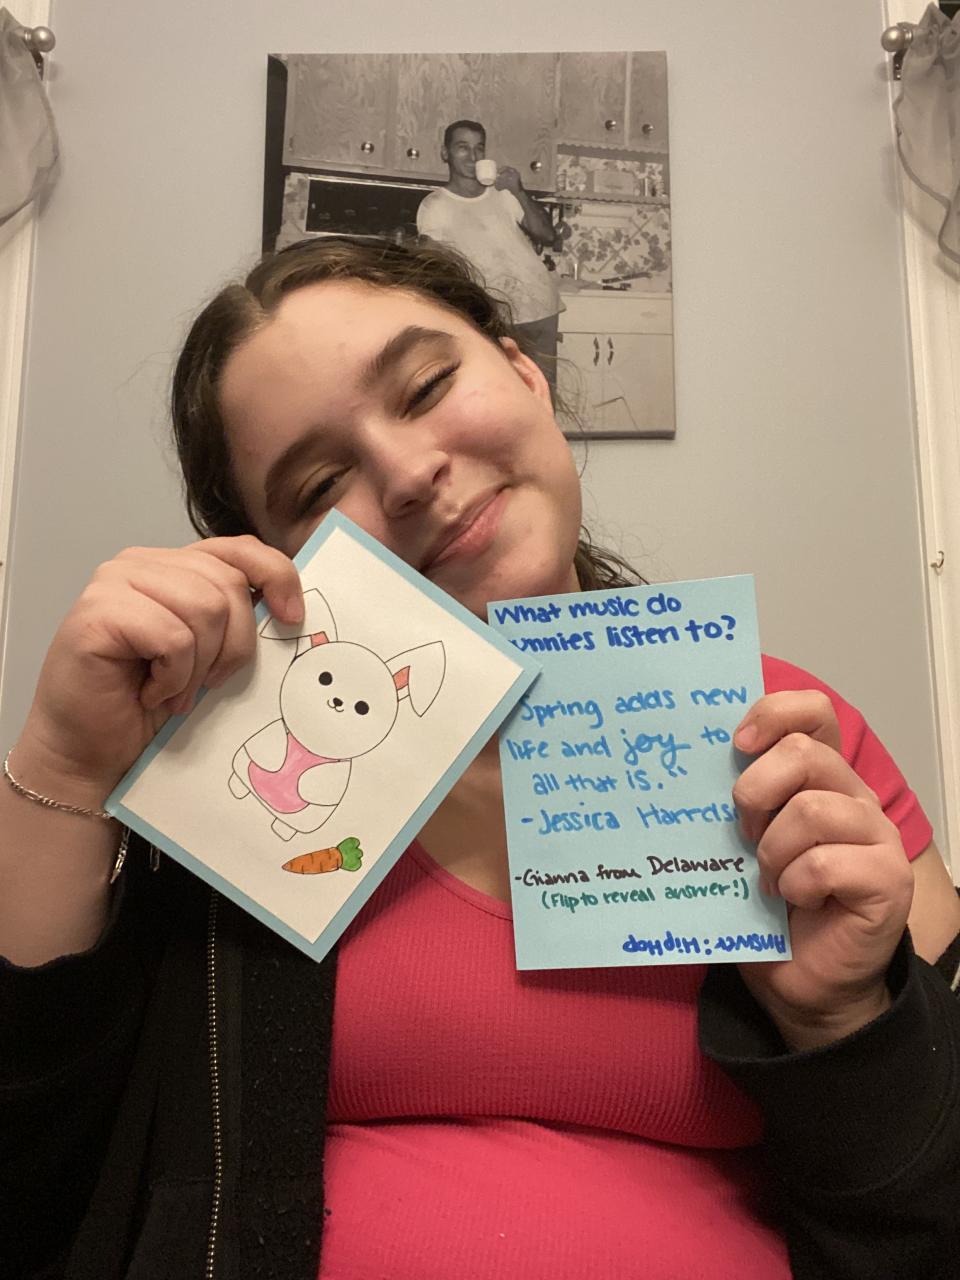 What music do
unnies listen to?
Spring adds new
life and joy to
all that is."
-Jessica Harrels
-Gianna from Delaware
(Flip to reveal answer!)
Answer: Hip Hop